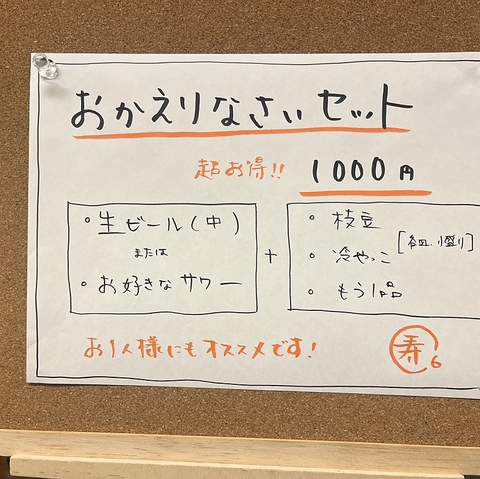 おかえりなさいセット
超お得!! 1000円
・生ビール(中)
または
・お好きなサワー
+
・枝豆
・冷やっこ
[各皿小盛り]
・もう1品
お1人様にもオススメです!
寿6